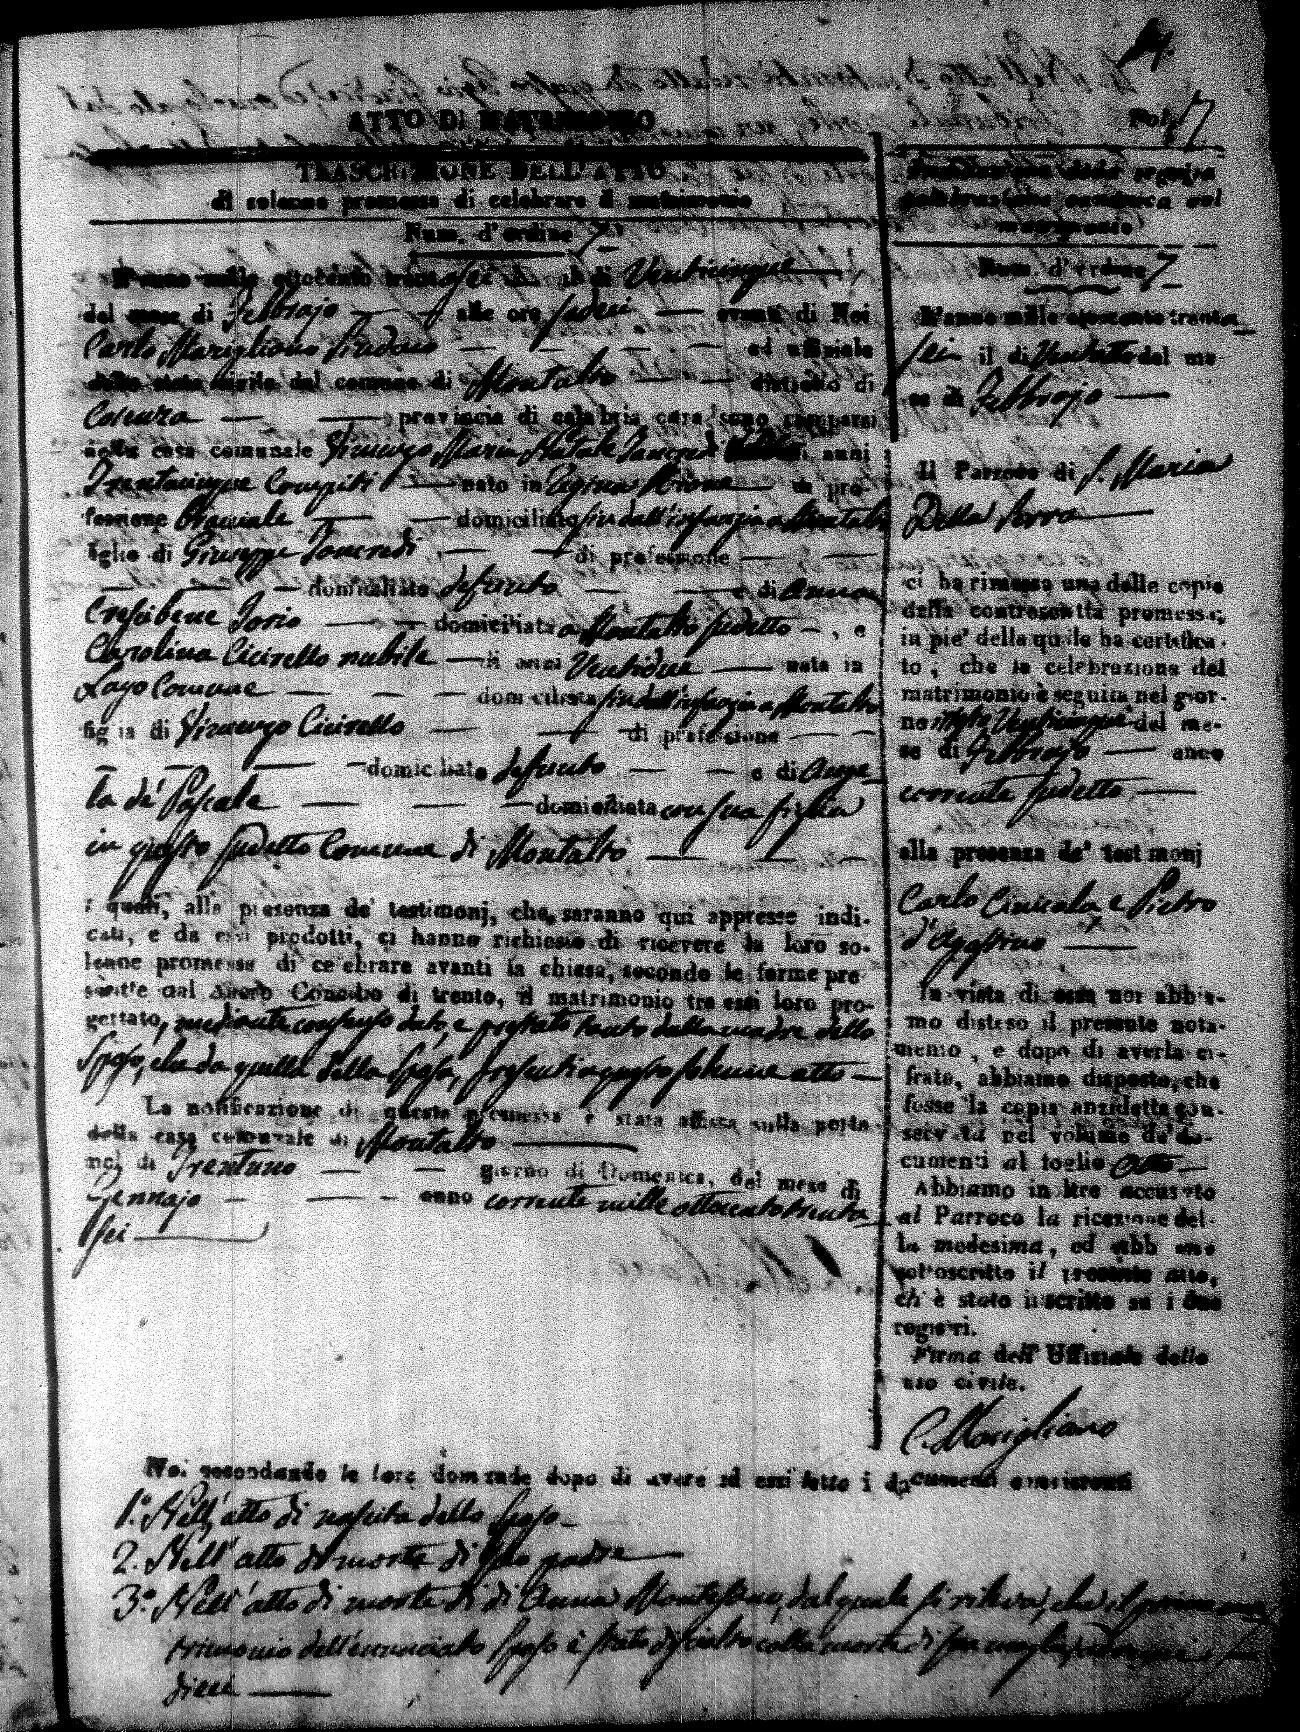 7
ATTO DI MATRIMONIO
TRASCRIZIONE DELL'ATTO
di solenne promessa di celebrare il matrimonio
Num. d'ordine 7
L'anno mille ottocento trentasei il di Venticinque
del mese di Febbrajo alle ore sedeci avanti di Noi
Carlo Marigliano Sindaco ed uffiziale
dello stato civile del comune di Montalto distretto di
Cosenza provincia di calabria citra sono comparsi
nella casa comunale Vincenzo Maria Natale Tancredi di anni
Trentacinque Compiti nato in Regina Rione di pro-
fessione domiciliato sin dall'infanzia a Montalto
figlio di Giuseppe Tancredi di professione
domiciliato defunto e di Anna
Crescibene Iorio domiciliata a Montalto sudetto, e
Carolina Ciciretto nubile di anni Ventidue nata in
Lago Comune domiciliata sin dall'infanzia a Montalto
figlia di Vincenzo Ciciretto di professione
domiciliato defunto e di Ange-
la de' Pascale domiciliata con sua figlia
in questo sudetto Comune di Montalto
i quali, alla presenza de' testimonj, che saranno qui appresso indi-
cati, e da essi prodotti, ci hanno richiesto di ricevere la loro so-
lenne promessa di celebrare avanti la chiesa, secondo le forme pre
scritte dal Sacro Concilio di trento, il matrimonio tra essi loro pro-
gettato, mediante consenso dato, e prestato tanto dalla madre dello
Sposo, che da quella della Sposa, presenti a questo solenne atto
La notificazione di questa promessa è stata affissa sulla porta
della casa comunale di Montalto
nel di Trentuno giorno di Domenica, del mese di
Gennajo anno corrente mille ottocento trenta
sei
Num. d'ordine 7
L'anno mille ottocento trenta
sei il di Ventotto del me-
se di Febbrajo
Il Parroco di S. Maria
Della Serra
ci ha rimessa una delle copie
della controscritta promessa,
in piè della quale ha certifica-
to, che la celebrazione del
matrimonio è seguita nel gior-
no Venticinque del me-
se di Febbrajo anno
corrente sudetto
alla presenza de' testimonj
Carlo e Pietro
d'Agostino
In vista di essa noi abbia-
mo disteso il presente nota-
mento, e dopo di averla ci-
frata, abbiamo disposto, che
fosse la copia anzidetta con-
servata nel volume de' do-
cumenti al foglio otto
Abbiamo in oltre accusato
al Parroco la ricezione del-
la medesima, ed abbiamo
sottoscritto il presente atto,
ch'è stato inscritto su i due
registri.
Firma dell'Uffiziale dello
stato civile.
C. Marigliano
Noi secondando le loro domande dopo di avere ad essi letto i documenti consistenti
1.º Nell'atto di nascita dello Sposo
2. Nell'atto di morte di suo padre
3.º Nell'atto di morte di di Anna dal quale si rileva, che il primo ma-
trimonio dell'enunciato Sposo è stato disciolto colla morte di sua moglie